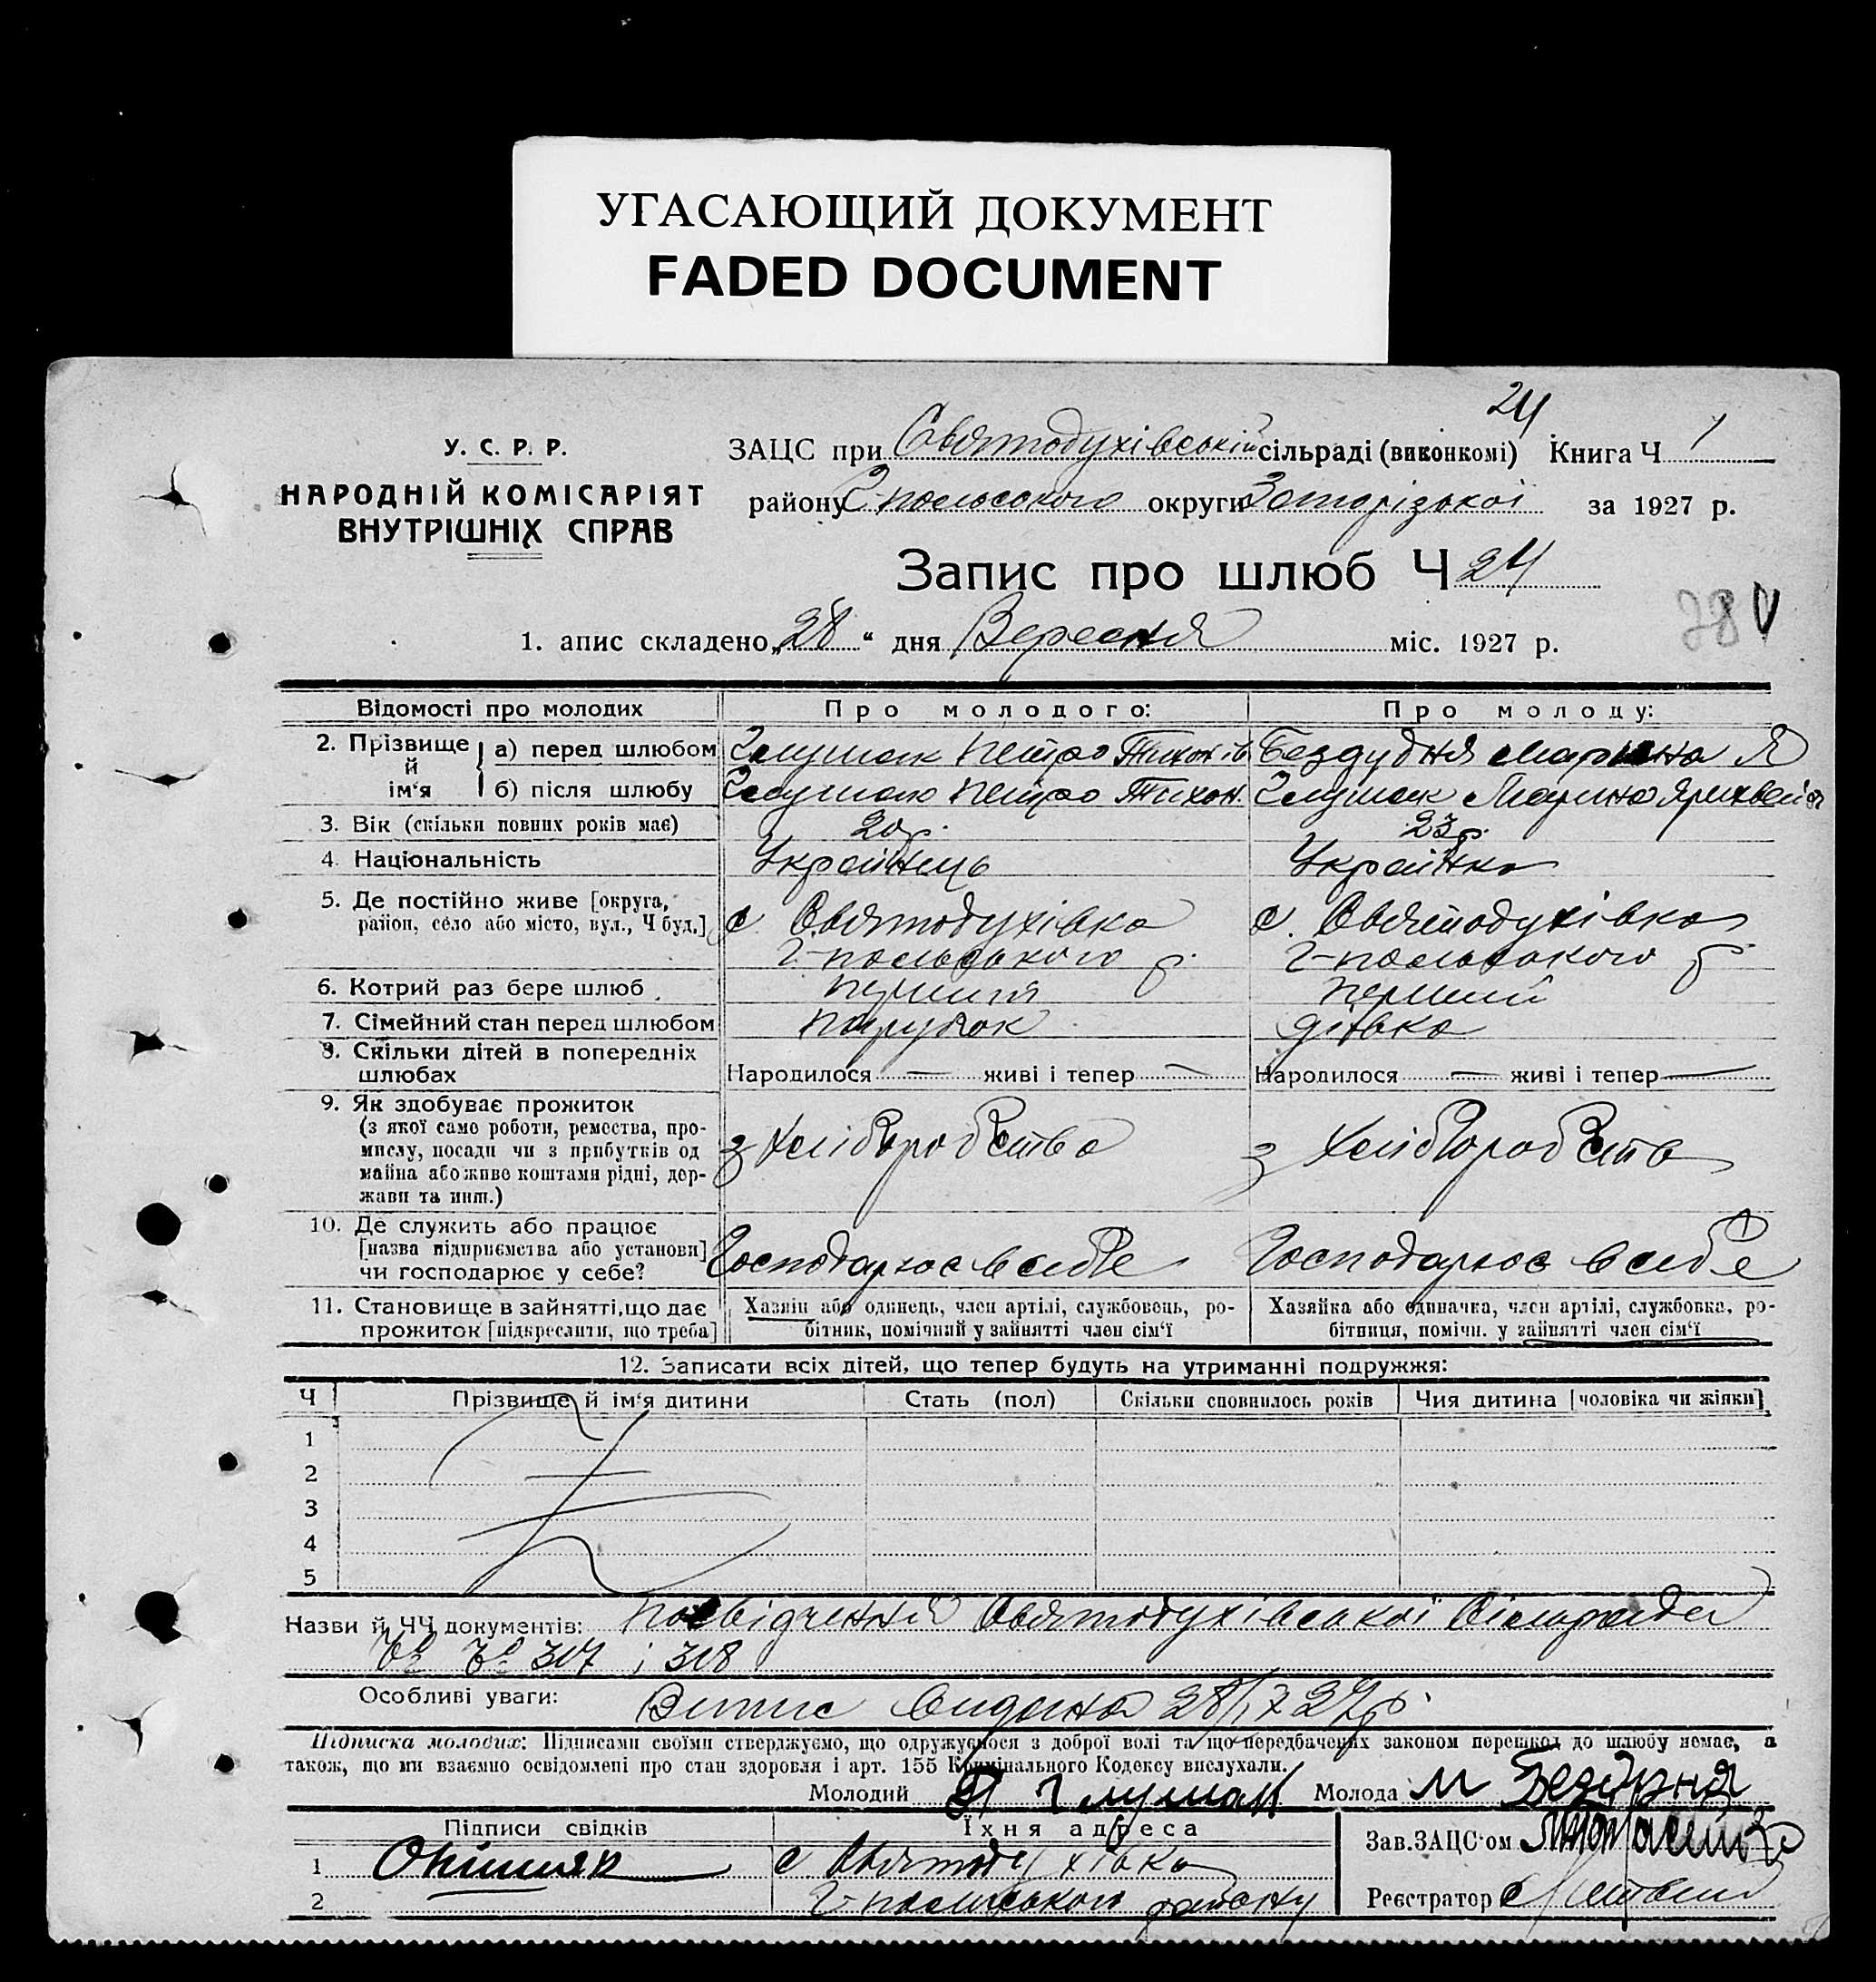 УГАСАЮЩИЙ ДОКУМЕНТ
FADED DOCUMENT
24
У. С. Р. Р.
НАРОДНІЙ КОМІСАРІЯТ
ВНУТРІШНІХ СПРАВ
ЗАЦС при Святодухівській сільраді (виконкомі) Книга Ч 1
району Г-польського округи Запорізької за 1927 р.
Запис про шлюб Ч 24
28 V
1. апис складено „28“ дня Вересня міс. 1927 р.
Відомості про молодих Про молодого: Про молоду:
2. Прізвище й ім‘я а) перед шлюбом Глушак Петро Тихонів Бездудня Марина Я
б) після шлюбу Глушак Петро Тихон. Глушак Марина
3. Вік (скільки повних років має) 20 р. 23 р.
4. Національність Українець Українка
5. Де постійно живе [округа, район, село або місто, вул., Ч буд.] с. Святодухівка с. Святодухівка
Г-польського р. Г-польського р
6. Котрий раз бере шлюб перший перший
7. Сімейний стан перед шлюбом парубок дівка
8. Скільки дітей в попередніх шлюбах Народилося — живі і тепер — Народилося — живі і тепер —
9. Як здобуває прожиток
(з якої само роботи, ремества, про-
мислу, посади чи з прибутків од
майна або живе коштами рідні, дер-
жави та инш.)
з хліборобства з хліборобств
10. Де служить або працює
[назва підприємства або установи]
чи господарює у себе?
Господарює в себе Господарює в себе
11. Становище в зайнятті, що дає
прожиток [підкреслити, що треба]
Хазяїн або одинець, член артілі, службовець, ро-
бітник, помічний у зайнятті член сім‘ї
Хазяйка або одиначка, член артілі, службовка, ро-
бітниця, помічн. у зайнятті член сім‘ї
12. Записати всіх дітей, що тепер будуть на утриманні подружжя:
Ч Прізвище й ім‘я дитини Стать (пол) Скільки сповнилось років Чия дитина [чоловіка чи жінки]
1
2
3
4
5
Назви й ЧЧ документів: Посвідчення Святодухівської Сільради
№ № 317 і 318
Особливі уваги: Випис видана
Підписка молодих: Підписами своїми стверджуємо, що одружуємося з доброї волі та що передбачених законом перешкод до шлюбу немає, а
також, що ми взаємно освідомлені про стан здоровля і арт. 155 Кримінального Кодексу вислухали.
Молодий П Глушак Молода М Бездудня
Підписи свідків Їхня адреса Зав.ЗАЦС‘ом
1 с Святодухівка
2 Г-польського району Реєстратор